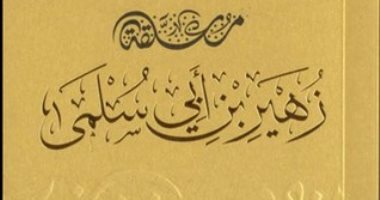 معلقة
زُهَيْرِ بْنِ أَبِي سُلْمَى